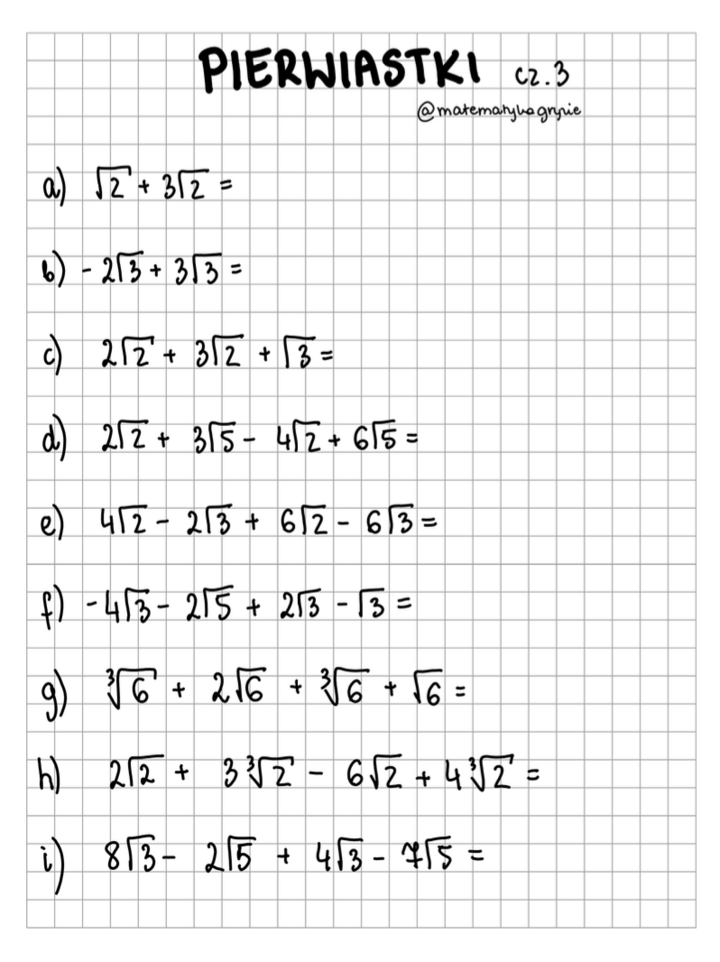 PIERWIASTKI cz.3
@matematykagryzie
a) √2 + 3√2 =
b) -2√3 + 3√3 =
c) 2√2 + 3√2 + √3 =
d) 2√2 + 3√5 - 4√2 + 6√5 =
e) 4√2 - 2√3 + 6√2 - 6√3 =
f) -4√3 - 2√5 + 2√3 - √3 =
g) ∛6 + 2√6 + ∛6 + √6 =
h) 2√2 + 3∛2 - 6√2 + 4∛2 =
i) 8√3 - 2√5 + 4√3 - 7√5 =